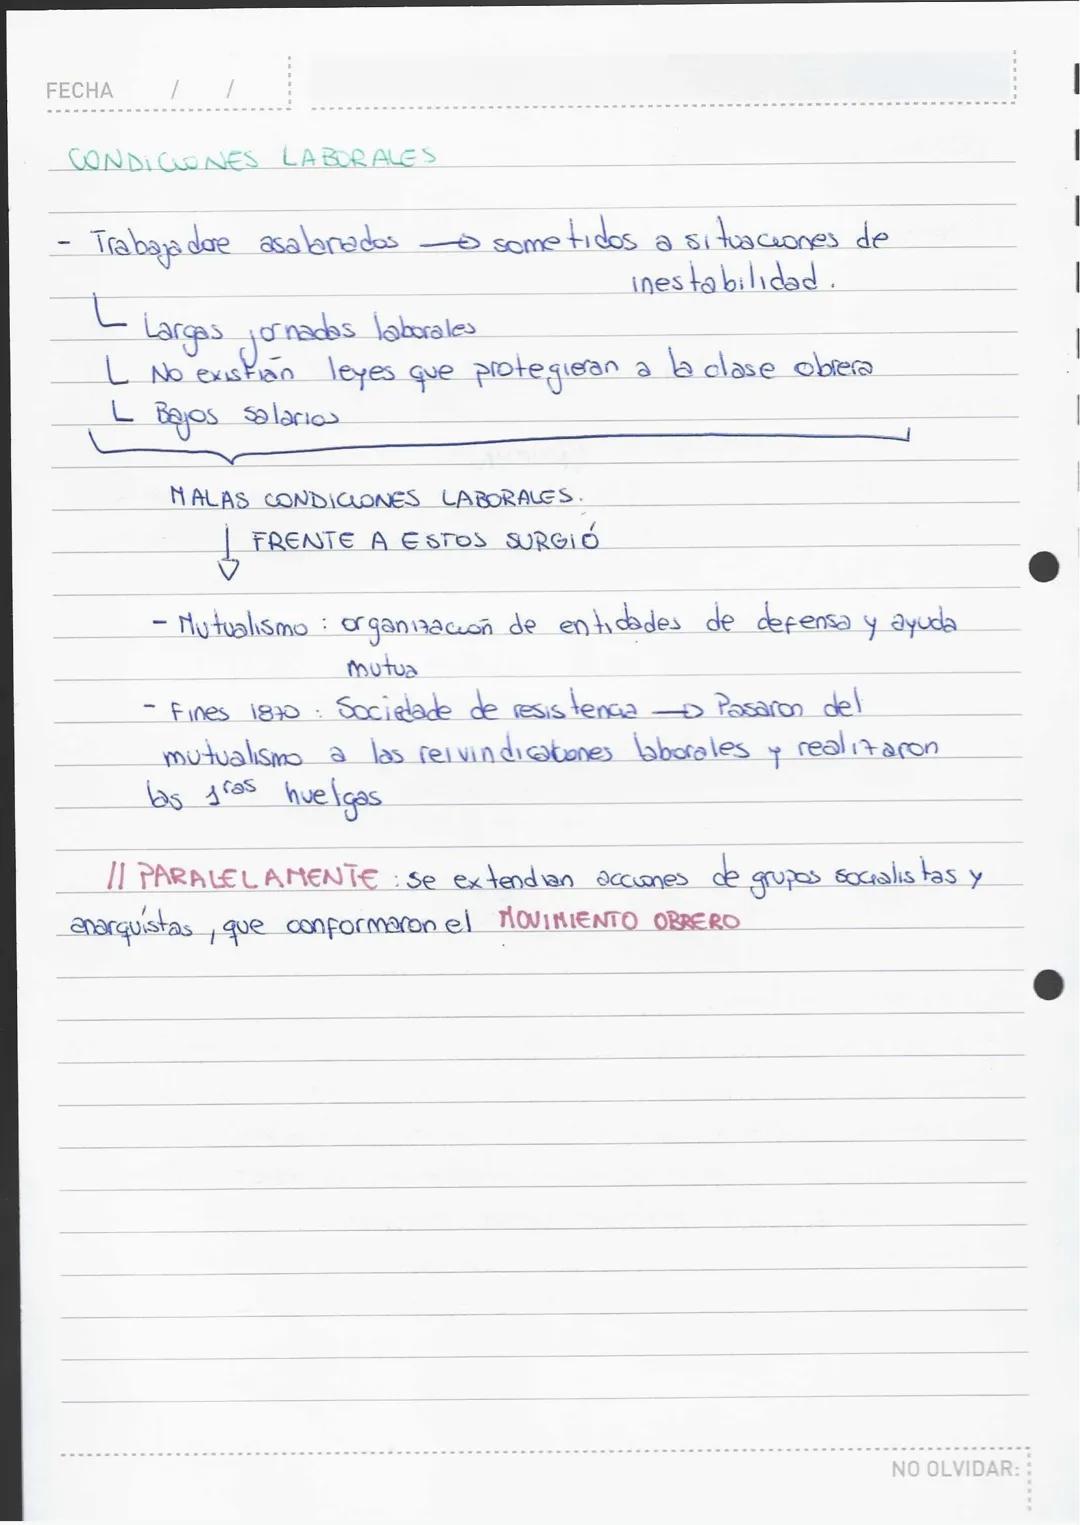 FECHA / /
CONDICIONES LABORALES
- Trabajadore asalariados → sometidos a situaciones de
inestabilidad.
Largas jornadas laborales
No existián leyes que protegieran a la clase obrera
Bajos salarios
MALAS CONDICIONES LABORALES.
FRENTE A ESTOS SURGIÓ
- Mutualismo : organización de entidades de defensa y ayuda
mutua
- Fines 1870 : Sociedade de resistencia → Pasaron del
mutualismo a las reivindicationes laborales y realizaron
las 1ras huelgas
// PARALELAMENTE : se extendian acciones de grupos socialistas y
anarquistas, que conformaron el MOVIMIENTO OBRERO
NO OLVIDAR: